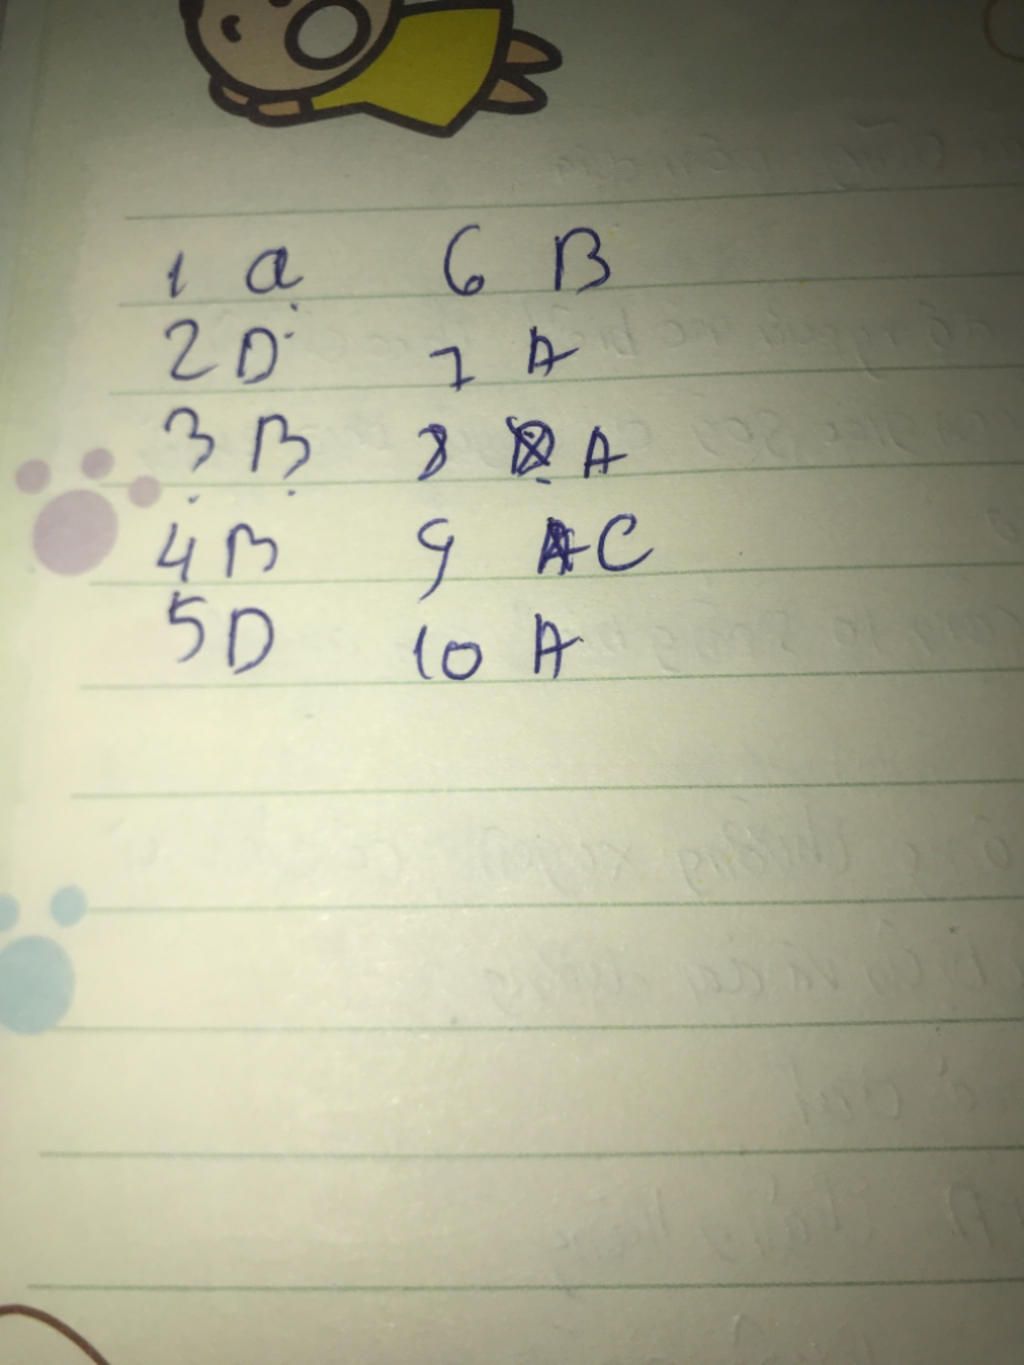 1 a 6 B
2 D 7 A
3 B 8 A
4 B 9 C
5 D 10 A